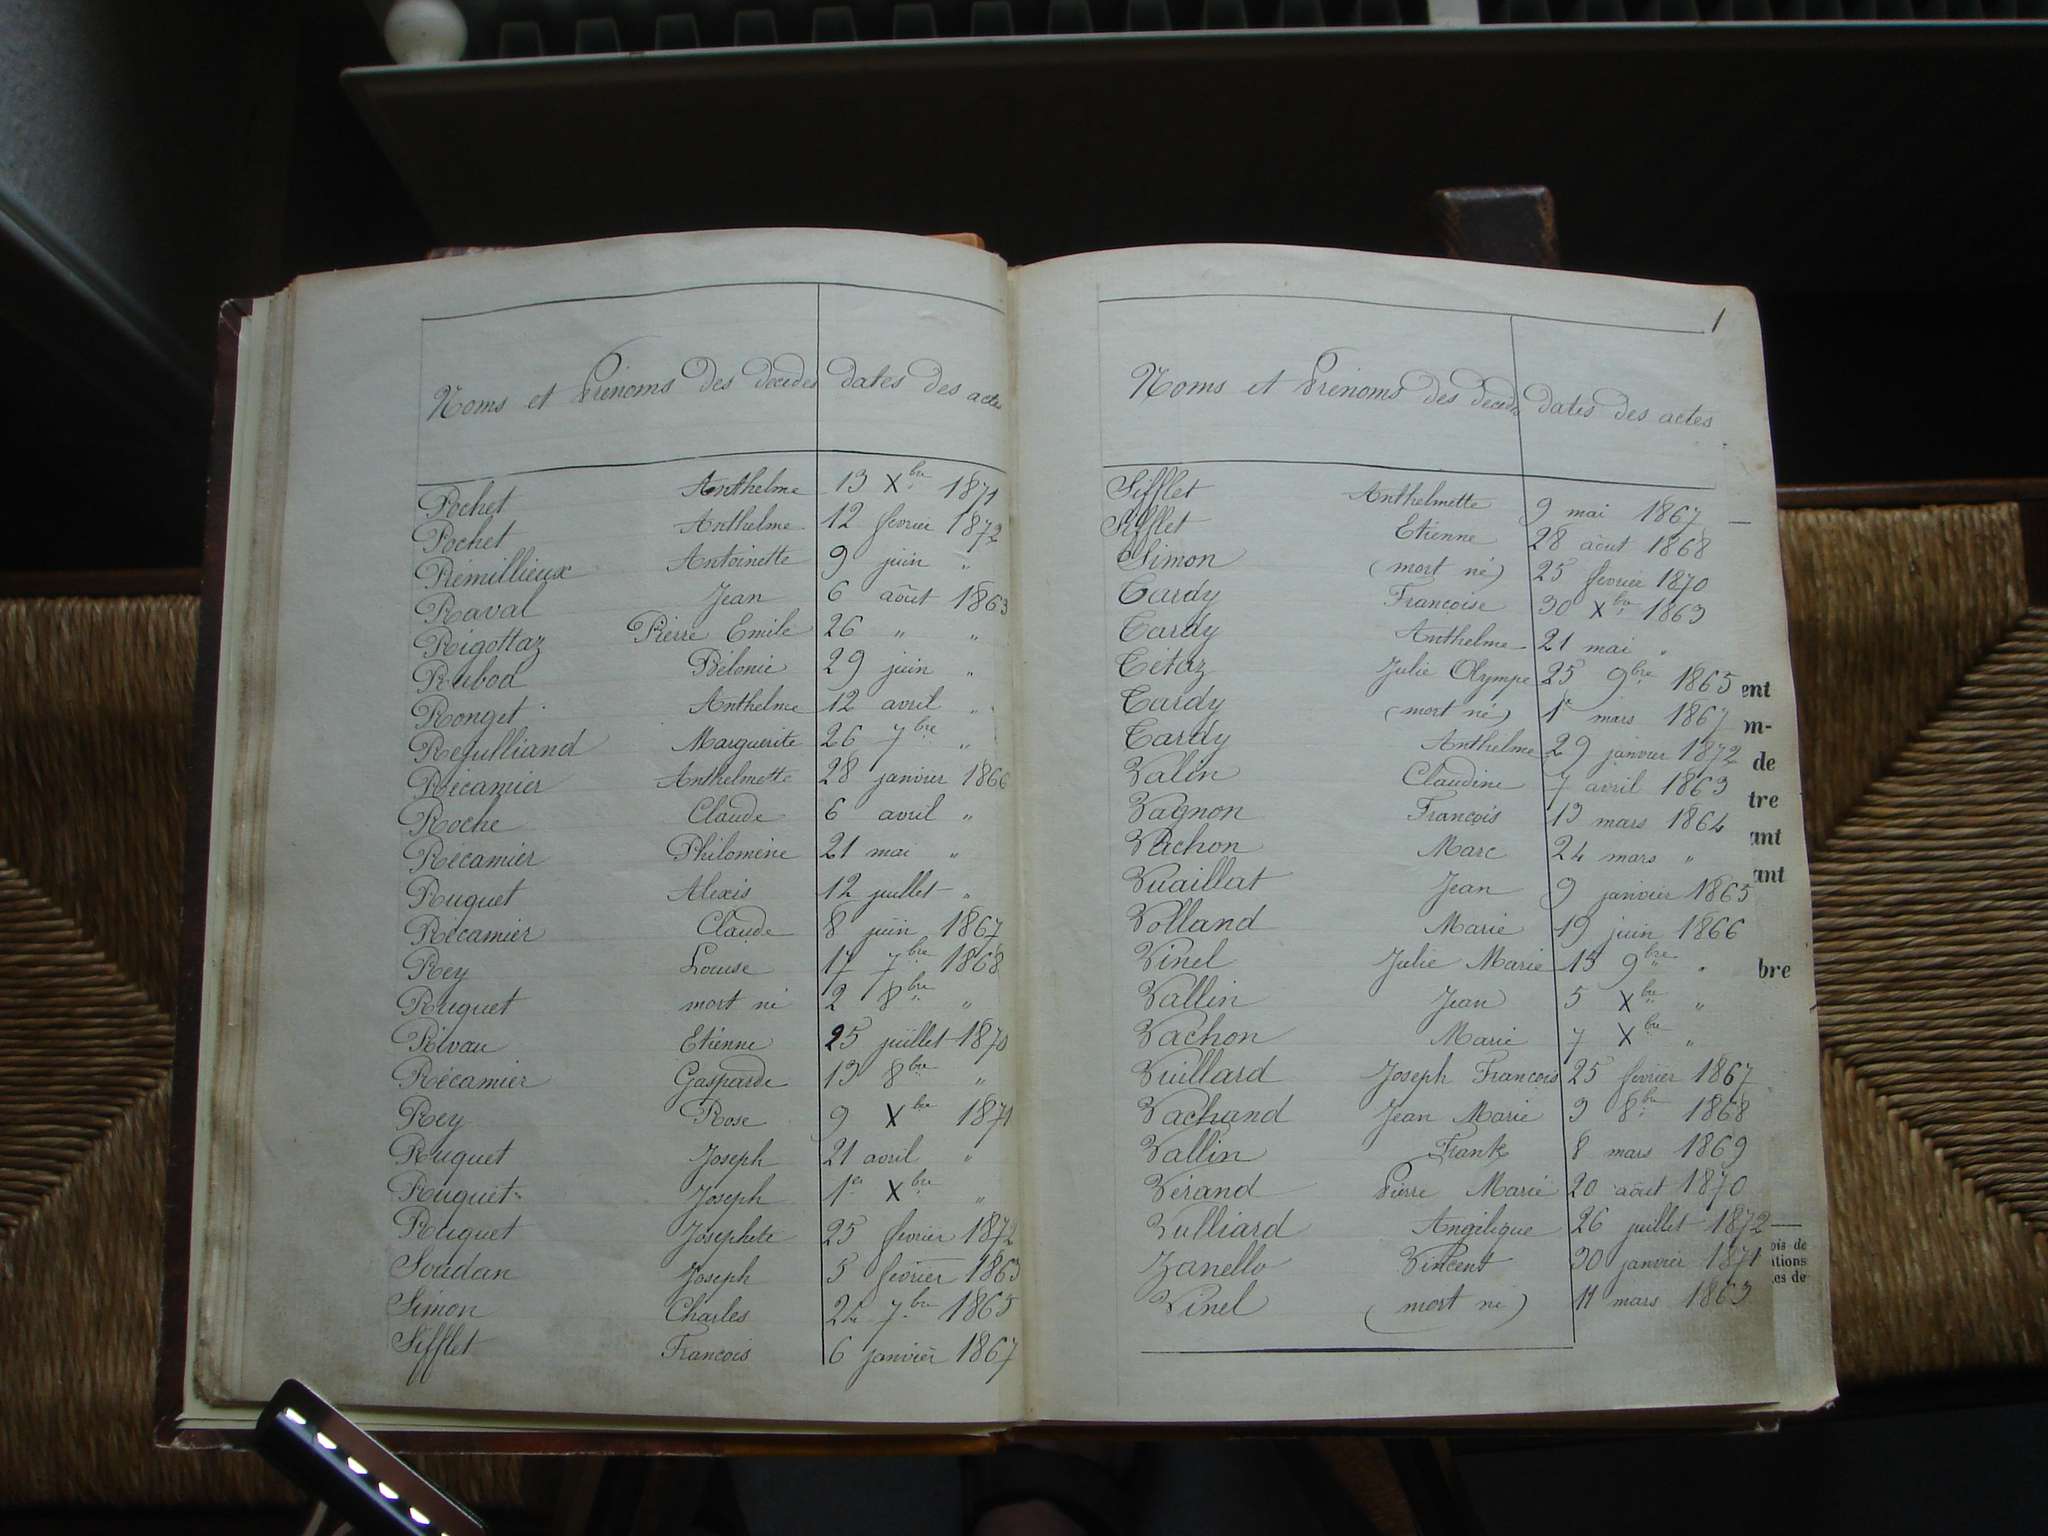 Noms et Prénoms des décédés dates des actes
Pochet Anthelme 13 Xbre 1871
Pochet Anthelme 12 fevrier 1872
Rémillieux Antoinette 9 juin "
Raval Jean 6 août 1863
Rigottaz Pierre Emile 26 " "
Rubod Bélonie 29 juin "
Ronget Anthelme 12 avril "
Marguerite 26 7bre "
Récamier Anthelmette 28 janvier 1866
Roche Claude 6 avril "
Récamier Philomène 21 mai "
Ruguet Alexis 12 juillet "
Récamier Claude 8 juin 1867
Rey Louise 17 7bre 1868
Ruguet mort né 2 8bre "
Rivau Etienne 25 juillet 1870
Récamier Gasparde 13 8bre "
Rey Rose 9 Xbre 1871
Ruguet Joseph 21 avril "
Ruguet Joseph 1er Xbre "
Ruguet Josephete 25 fevrier 1872
Soudan Joseph 5 fevrier 1863
Simon Charles 24 7bre 1865
Sifflet Francois 6 janvier 1867
1
Noms et Prénoms des décédés dates des actes
Sifflet Anthelmette 9 mai 1867
Sifflet Etienne 28 août 1868
Simon (mort né) 25 fevrier 1870
Tardy Françoise 30 Xbre 1863
Tardy Anthelme 21 mai "
Tétaz Julie Olympe 25 9bre 1865
Tardy (mort né) 1er mars 1867
Tardy Anthelme 29 janvier 1872
Valin Claudine 7 avril 1863
Vagnon François 13 mars 1864
Vachon Marc 24 mars "
Vuaillat Jean 9 janvier 1865
Volland Marie 19 juin 1866
Vinel Julie Marie 15 9bre "
Vallin Jean 5 Xbre "
Vachon Marie 7 Xbre "
Vuillard Joseph Francois 25 fevrier 1867
Vachand Jean Marie 3 8bre 1868
Vallin Frank 8 mars 1869
Vérand Pierre Marie 20 août 1870
Vulliard Angélique 26 juillet 1872
Zanello Vincent 30 janvier 1871
Vinel (mort né) 11 mars 1863
ent
m-
de
tre
ant
ant
bre
ois de
ations
es de